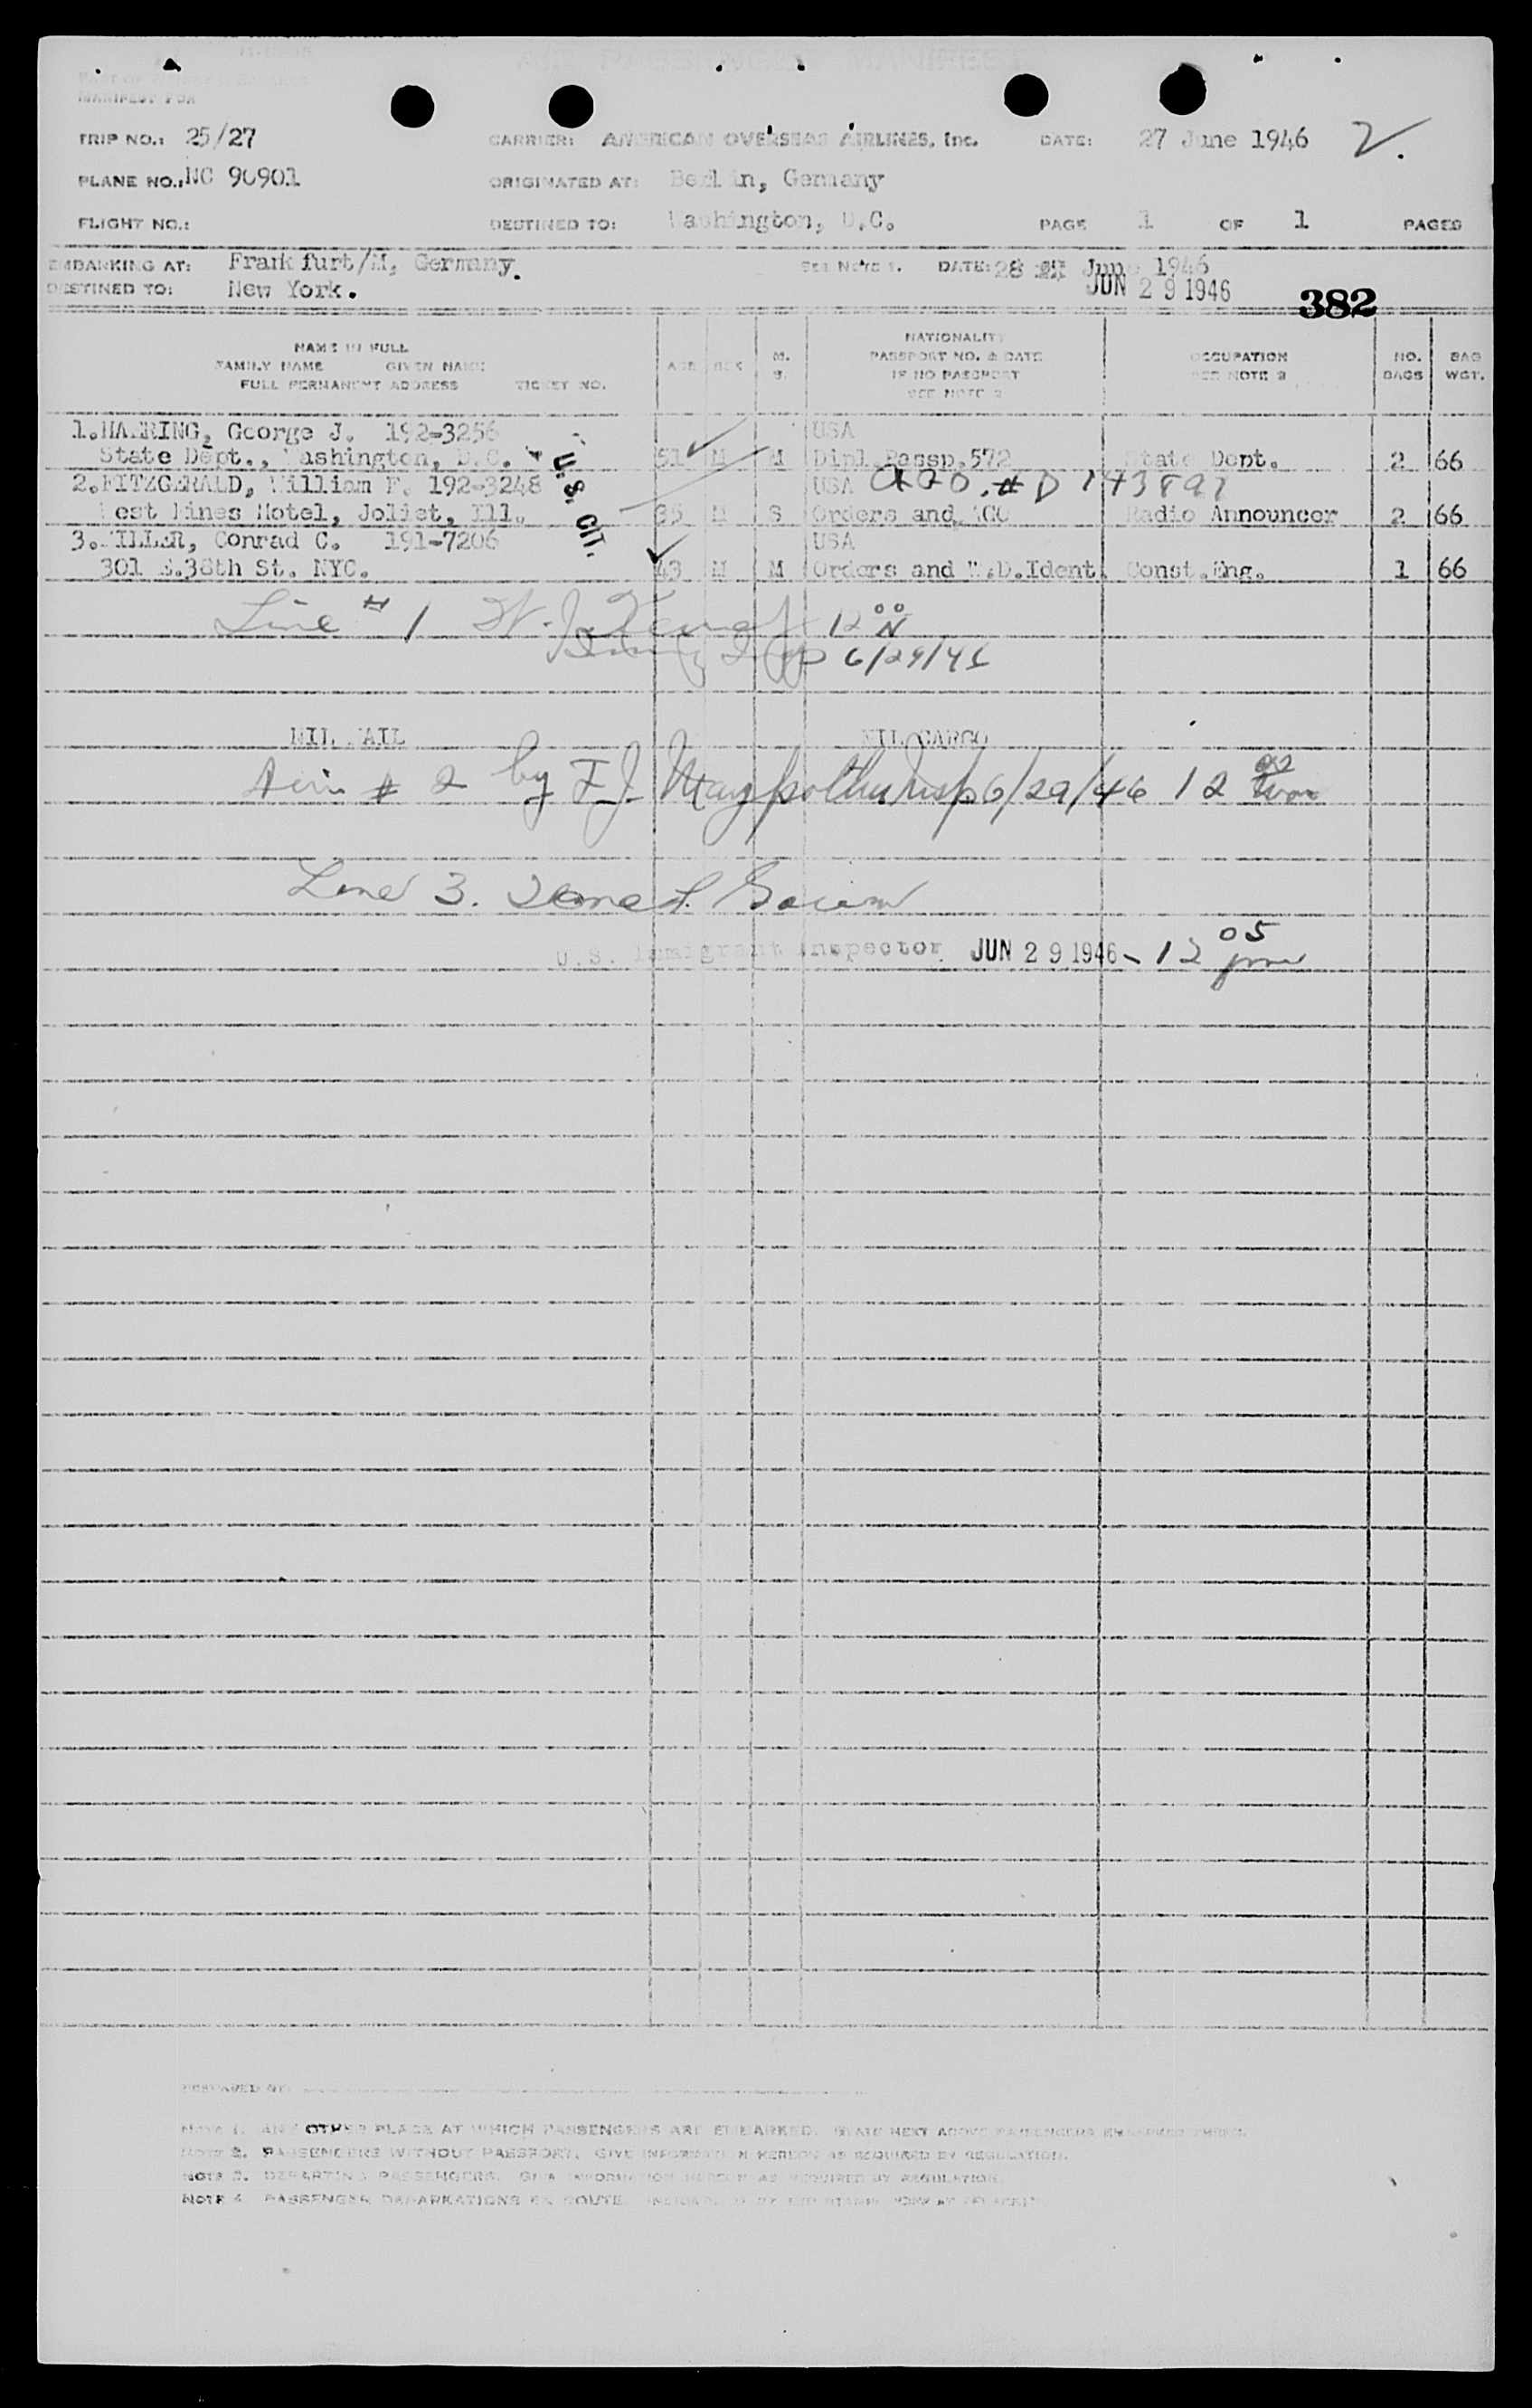 AIR PASSENGER MANIFEST
MANIFEST FOR
TRIP NO.: 25/27 CARRIER: AMERICAN OVERSEAS AIRLINES, Inc. DATE: 27 June 1946 2.
PLANE NO.: NC 90901 ORIGINATED AT: Berlin, Germany
FLIGHT NO.: DESTINED TO: Washington, D.C. PAGE 1 OF 1 PAGES
EMBARKING AT: Frankfurt/M, Germany. SEE NOTE 1. DATE: 28 June 1946
DESTINED TO: New York. JUN 29 1946 382
NAME IN FULL
FAMILY NAME GIVEN NAME
FULL PERMANENT ADDRESS TICKET NO.
AGE SEX M. S.
NATIONALITY
PASSPORT NO. & DATE
IF NO PASSPORT
SEE NOTE 2
OCCUPATION
SEE NOTE 3
NO. BAGS
BAG WGT.
1. HAERING, George J. 192-3256 USA
State Dept., Washington, D.C. 51 M M Dipl.Passp.572 State Dept. 2 66
U.S. CIT.
2. FITZGERALD, William F. 192-3248 USA AGO. # D 143897
West Pines Motel, Joliet, Ill. 35 M S Orders and AGO Radio Announcer 2 66
3. MILLER, Conrad C. 191-7206 USA
301 E.38th St. NYC. 43 M M Orders and W.D.Ident. Const.Eng. 1 66
Line # 1 12 00 N
6/29/46
NIL MAIL NIL CARGO
# 2 by F.J. Insp. 6/29/46 12
Line 3.
U.S. Immigrant Inspector JUN 29 1946 - 12 05 pm
PREPARED BY
NOTE 1. ANY OTHER PLACE AT WHICH PASSENGERS ARE EMBARKED. STATE NEXT ABOVE PASSENGERS EMBARKED THERE.
NOTE 2. PASSENGERS WITHOUT PASSPORT. GIVE INFORMATION HEREON AS REQUIRED BY REGULATION.
NOTE 3. DEPARTING PASSENGERS. GIVE INFORMATION HEREON AS REQUIRED BY REGULATION.
NOTE 4. PASSENGER DEBARKATIONS EN ROUTE.